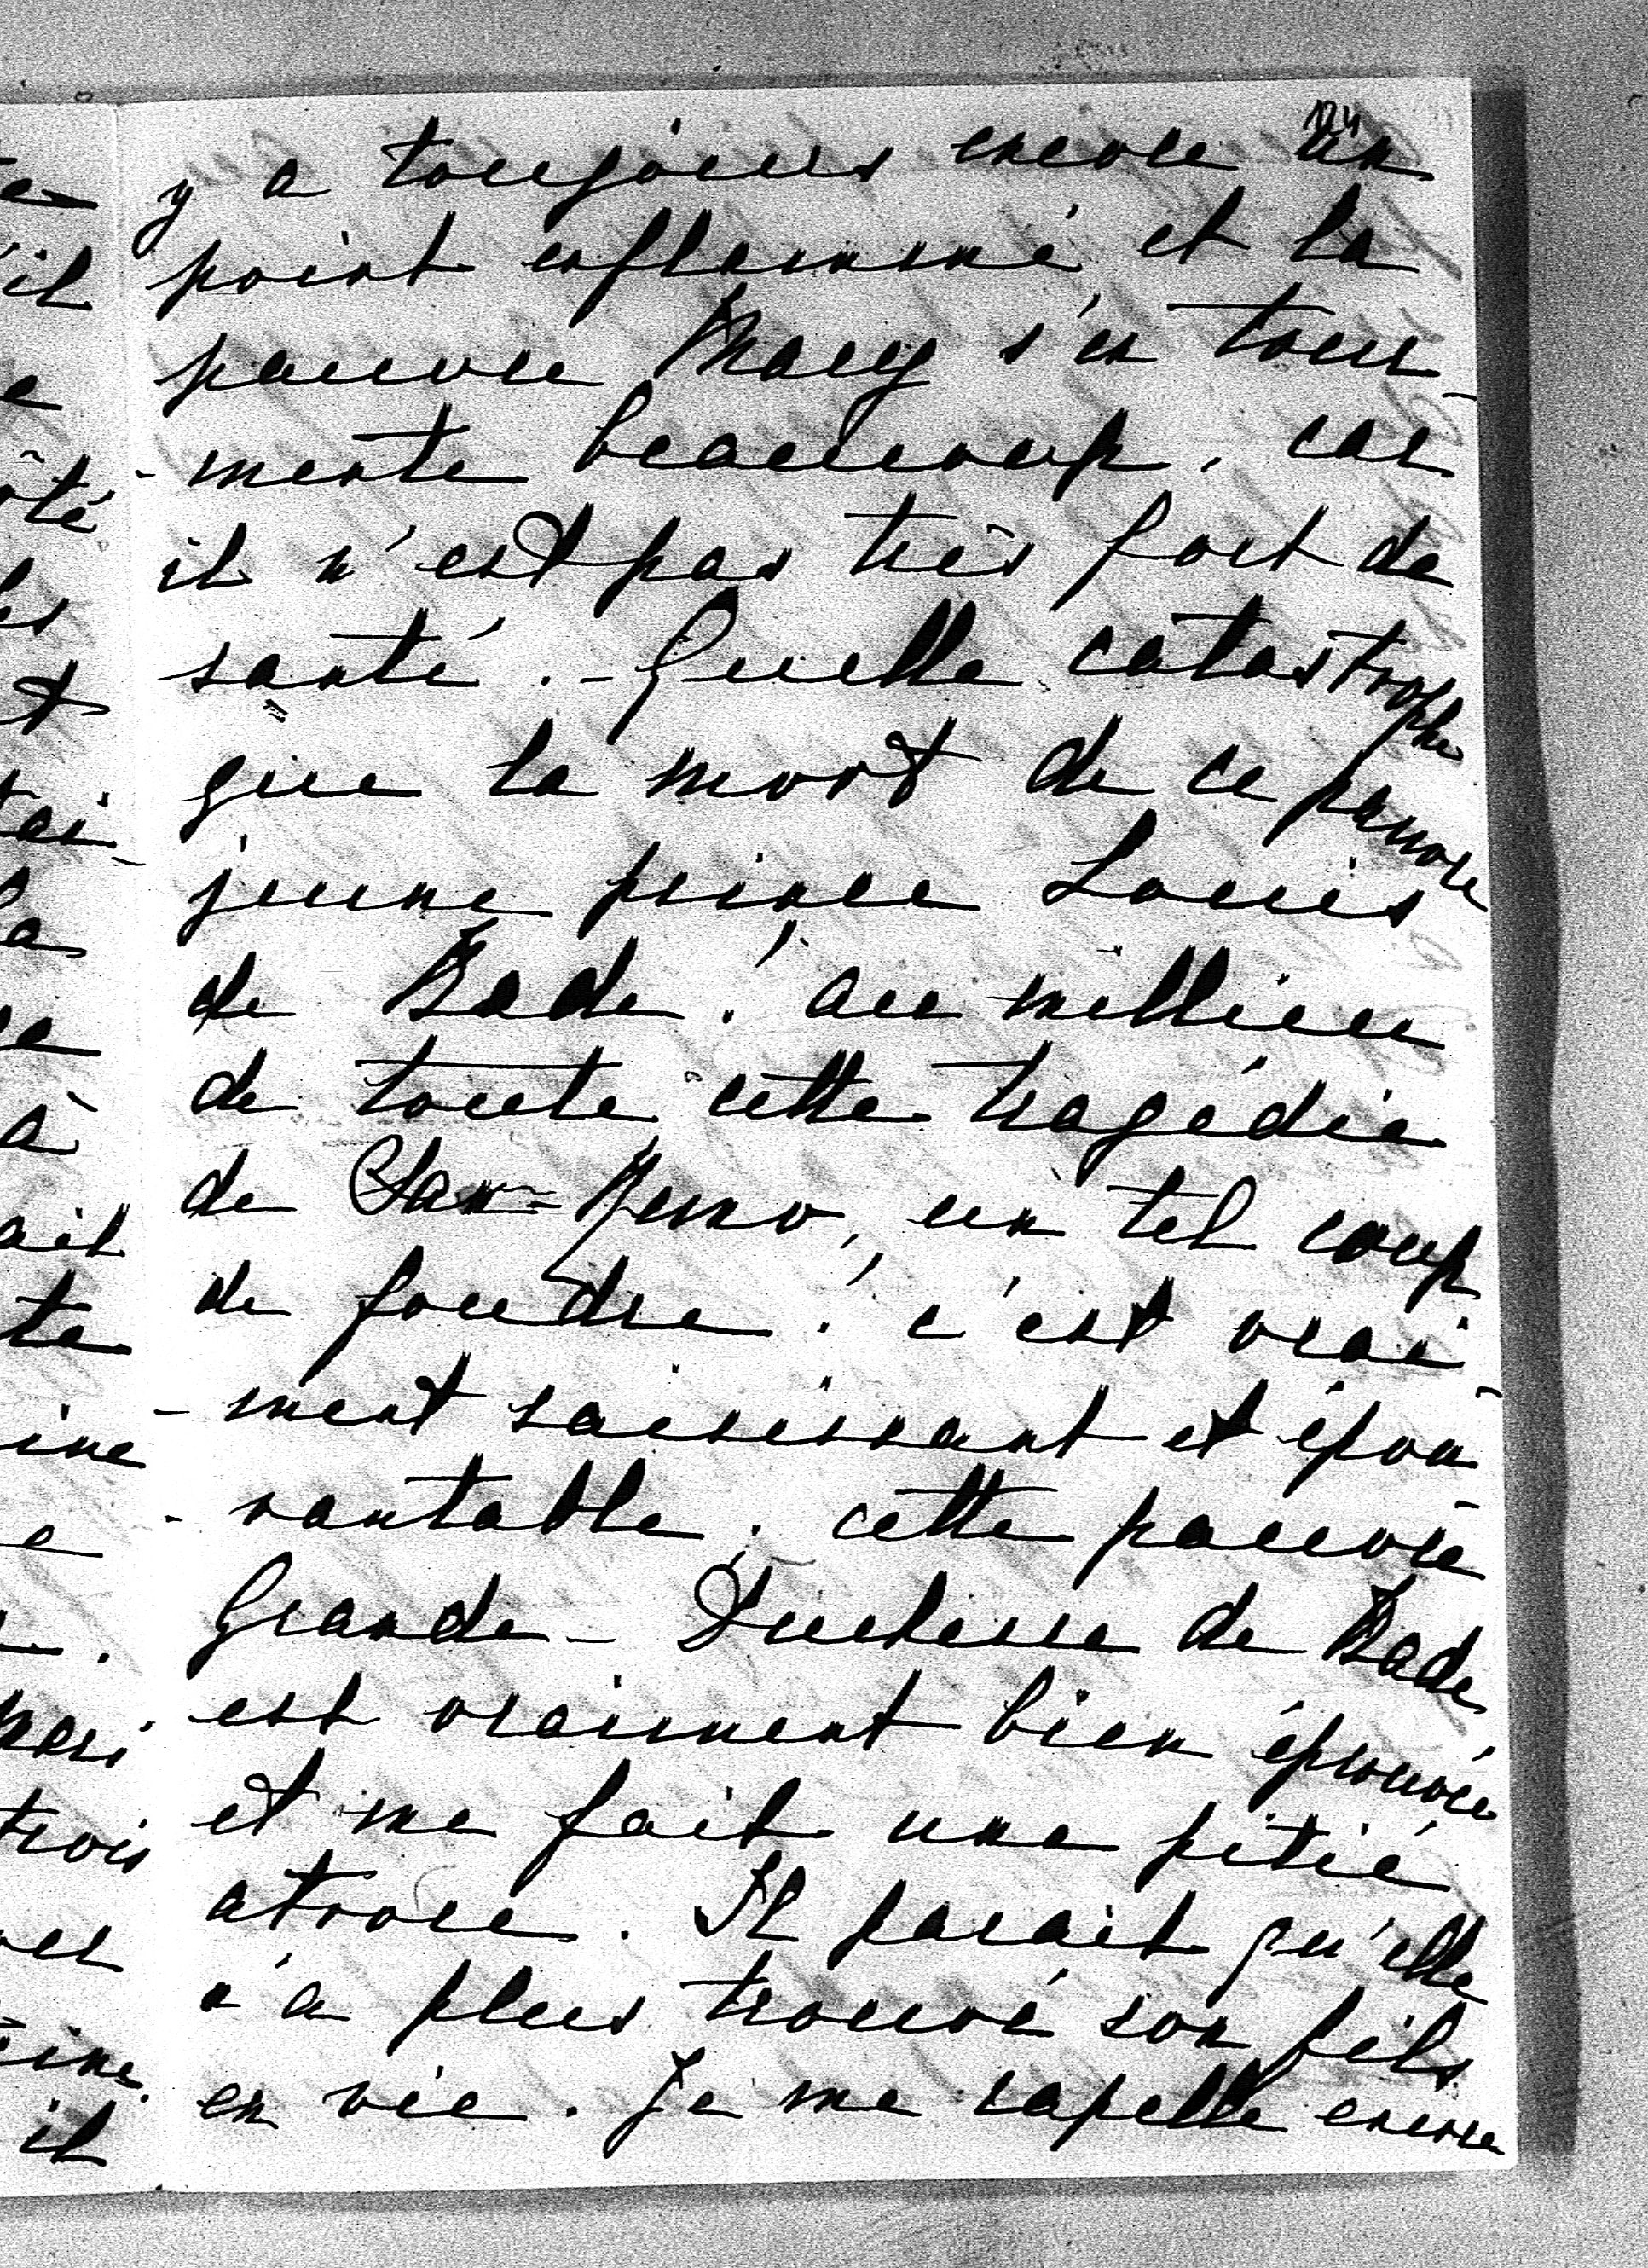 124
y a toujours encore un
point enflammé et la
pauvre Mary s'en tour-
-mente beaucoup, car
il n'est pas très fort de
santé. - Quelle catastrophe
que la mort de ce pauvre
jeune prince Louis
de Bade! au millieu
de toute cette tragédie
de San-Remo, un tel coup
de foudre! c'est vrai-
-ment saisissant et épou-
-vantable, cette pauvre
Grande-Duchesse de Bade
est vraiment bien éprouvée
et me fait une pitié
atroce. Il parait qu'elle
n'a plus trouvé son fils
en vie. Je me rapelle encore